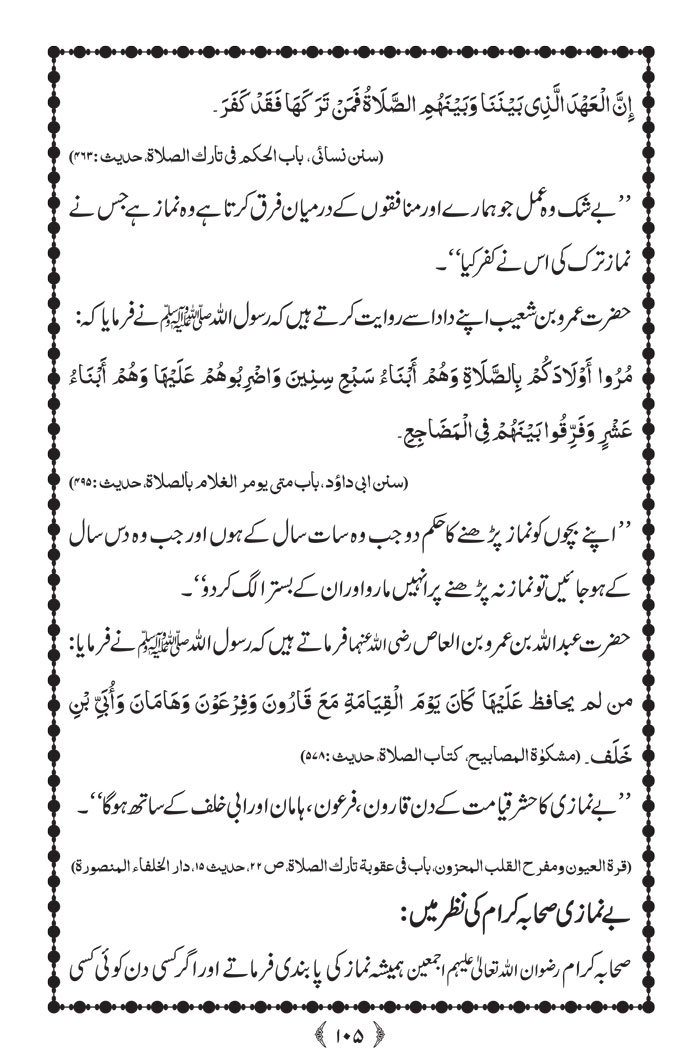 إِنَّ الْعَهْدَ الَّذِی بَیْنَنَا وَبَیْنَهُمِ الصَّلَاةُ فَمَنْ تَرَكَهَا فَقَدْ كَفَرَ۔
(سنن نسائی، باب الحکم فی تارك الصلاة، حدیث:۴۶۳)
’’بے شک وہ عمل جو ہمارے اور منافقوں کے درمیان فرق کرتا ہے وہ نماز ہے جس نے
نماز ترک کی اس نے کفر کیا‘‘۔
حضرت عمرو بن شعیب اپنے دادا سے روایت کرتے ہیں کہ رسول اللہ ﷺ نے فرمایا کہ:
مُرُوا أَوْلَادَكُمْ بِالصَّلَاةِ وَهُمْ أَبْنَاءُ سَبْعِ سِنِینَ وَاضْرِبُوهُمْ عَلَیْهَا وَهُمْ أَبْنَاءُ
عَشْرٍ وَفَرِّقُوا بَیْنَهُمْ فِی الْمَضَاجِعِ۔
(سنن ابی داؤد، باب متی یومر الغلام بالصلاة، حدیث:۴۹۵)
’’اپنے بچوں کو نماز پڑھنے کا حکم دو جب وہ سات سال کے ہوں اور جب وہ دس سال
کے ہو جائیں تو نماز نہ پڑھنے پر انہیں مارو اور ان کے بستر الگ کر دو‘‘۔
حضرت عبداللہ بن عمرو بن العاص رضی اللہ عنہما فرماتے ہیں کہ رسول اللہ ﷺ نے فرمایا:
من لم یحافظ عَلَیْهَا كَانَ یَوْمَ الْقِیَامَةِ مَعَ قَارُونَ وَفِرْعَوْنَ وَهَامَانَ وَأُبَیِّ بْنِ
خَلَف۔ (مشکوٰة المصابیح، کتاب الصلاة، حدیث:۵۷۸)
’’بے نمازی کا حشر قیامت کے دن قارون، فرعون، ہامان اور ابی خلف کے ساتھ ہوگا‘‘۔
(قرة العیون ومفرح القلب المحزون، باب فی عقوبة تارك الصلاة، ص ۲۲، حدیث ۱۵، دار الخلفاء المنصورة)
بے نمازی صحابہ کرام کی نظر میں:
صحابہ کرام رضوان اللہ تعالیٰ علیہم اجمعین ہمیشہ نماز کی پابندی فرماتے اور اگر کسی دن کوئی کسی
﴿۱۰۵﴾